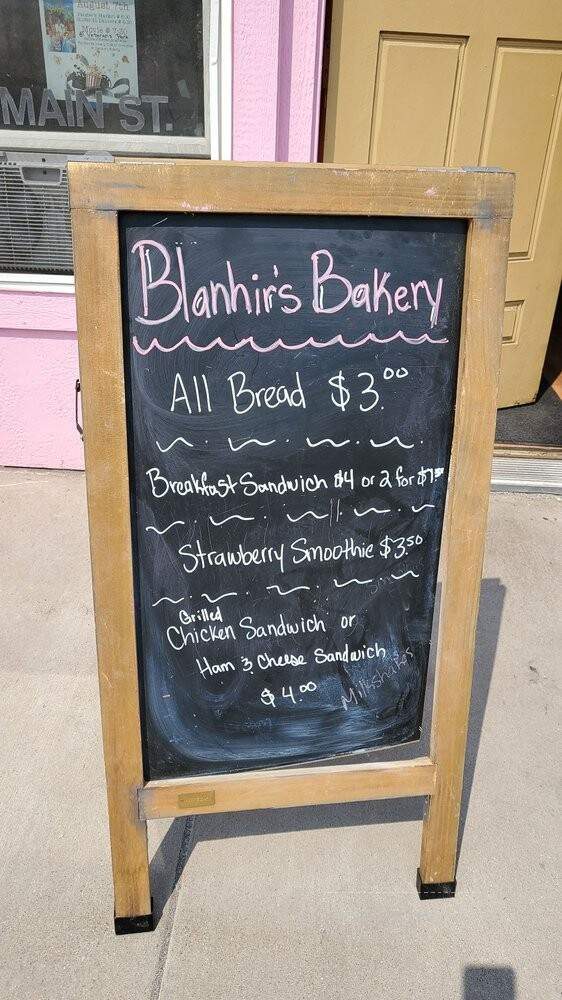 August 7th
Movie @ 7:30
MAIN ST.
Blanhir's Bakery
All Bread $3.00
Breakfast Sandwich $4 or 2 for $7.50
Strawberry Smoothie $3.50
Grilled
Chicken Sandwich or
Ham & Cheese Sandwich
$4.00
Milkshakes